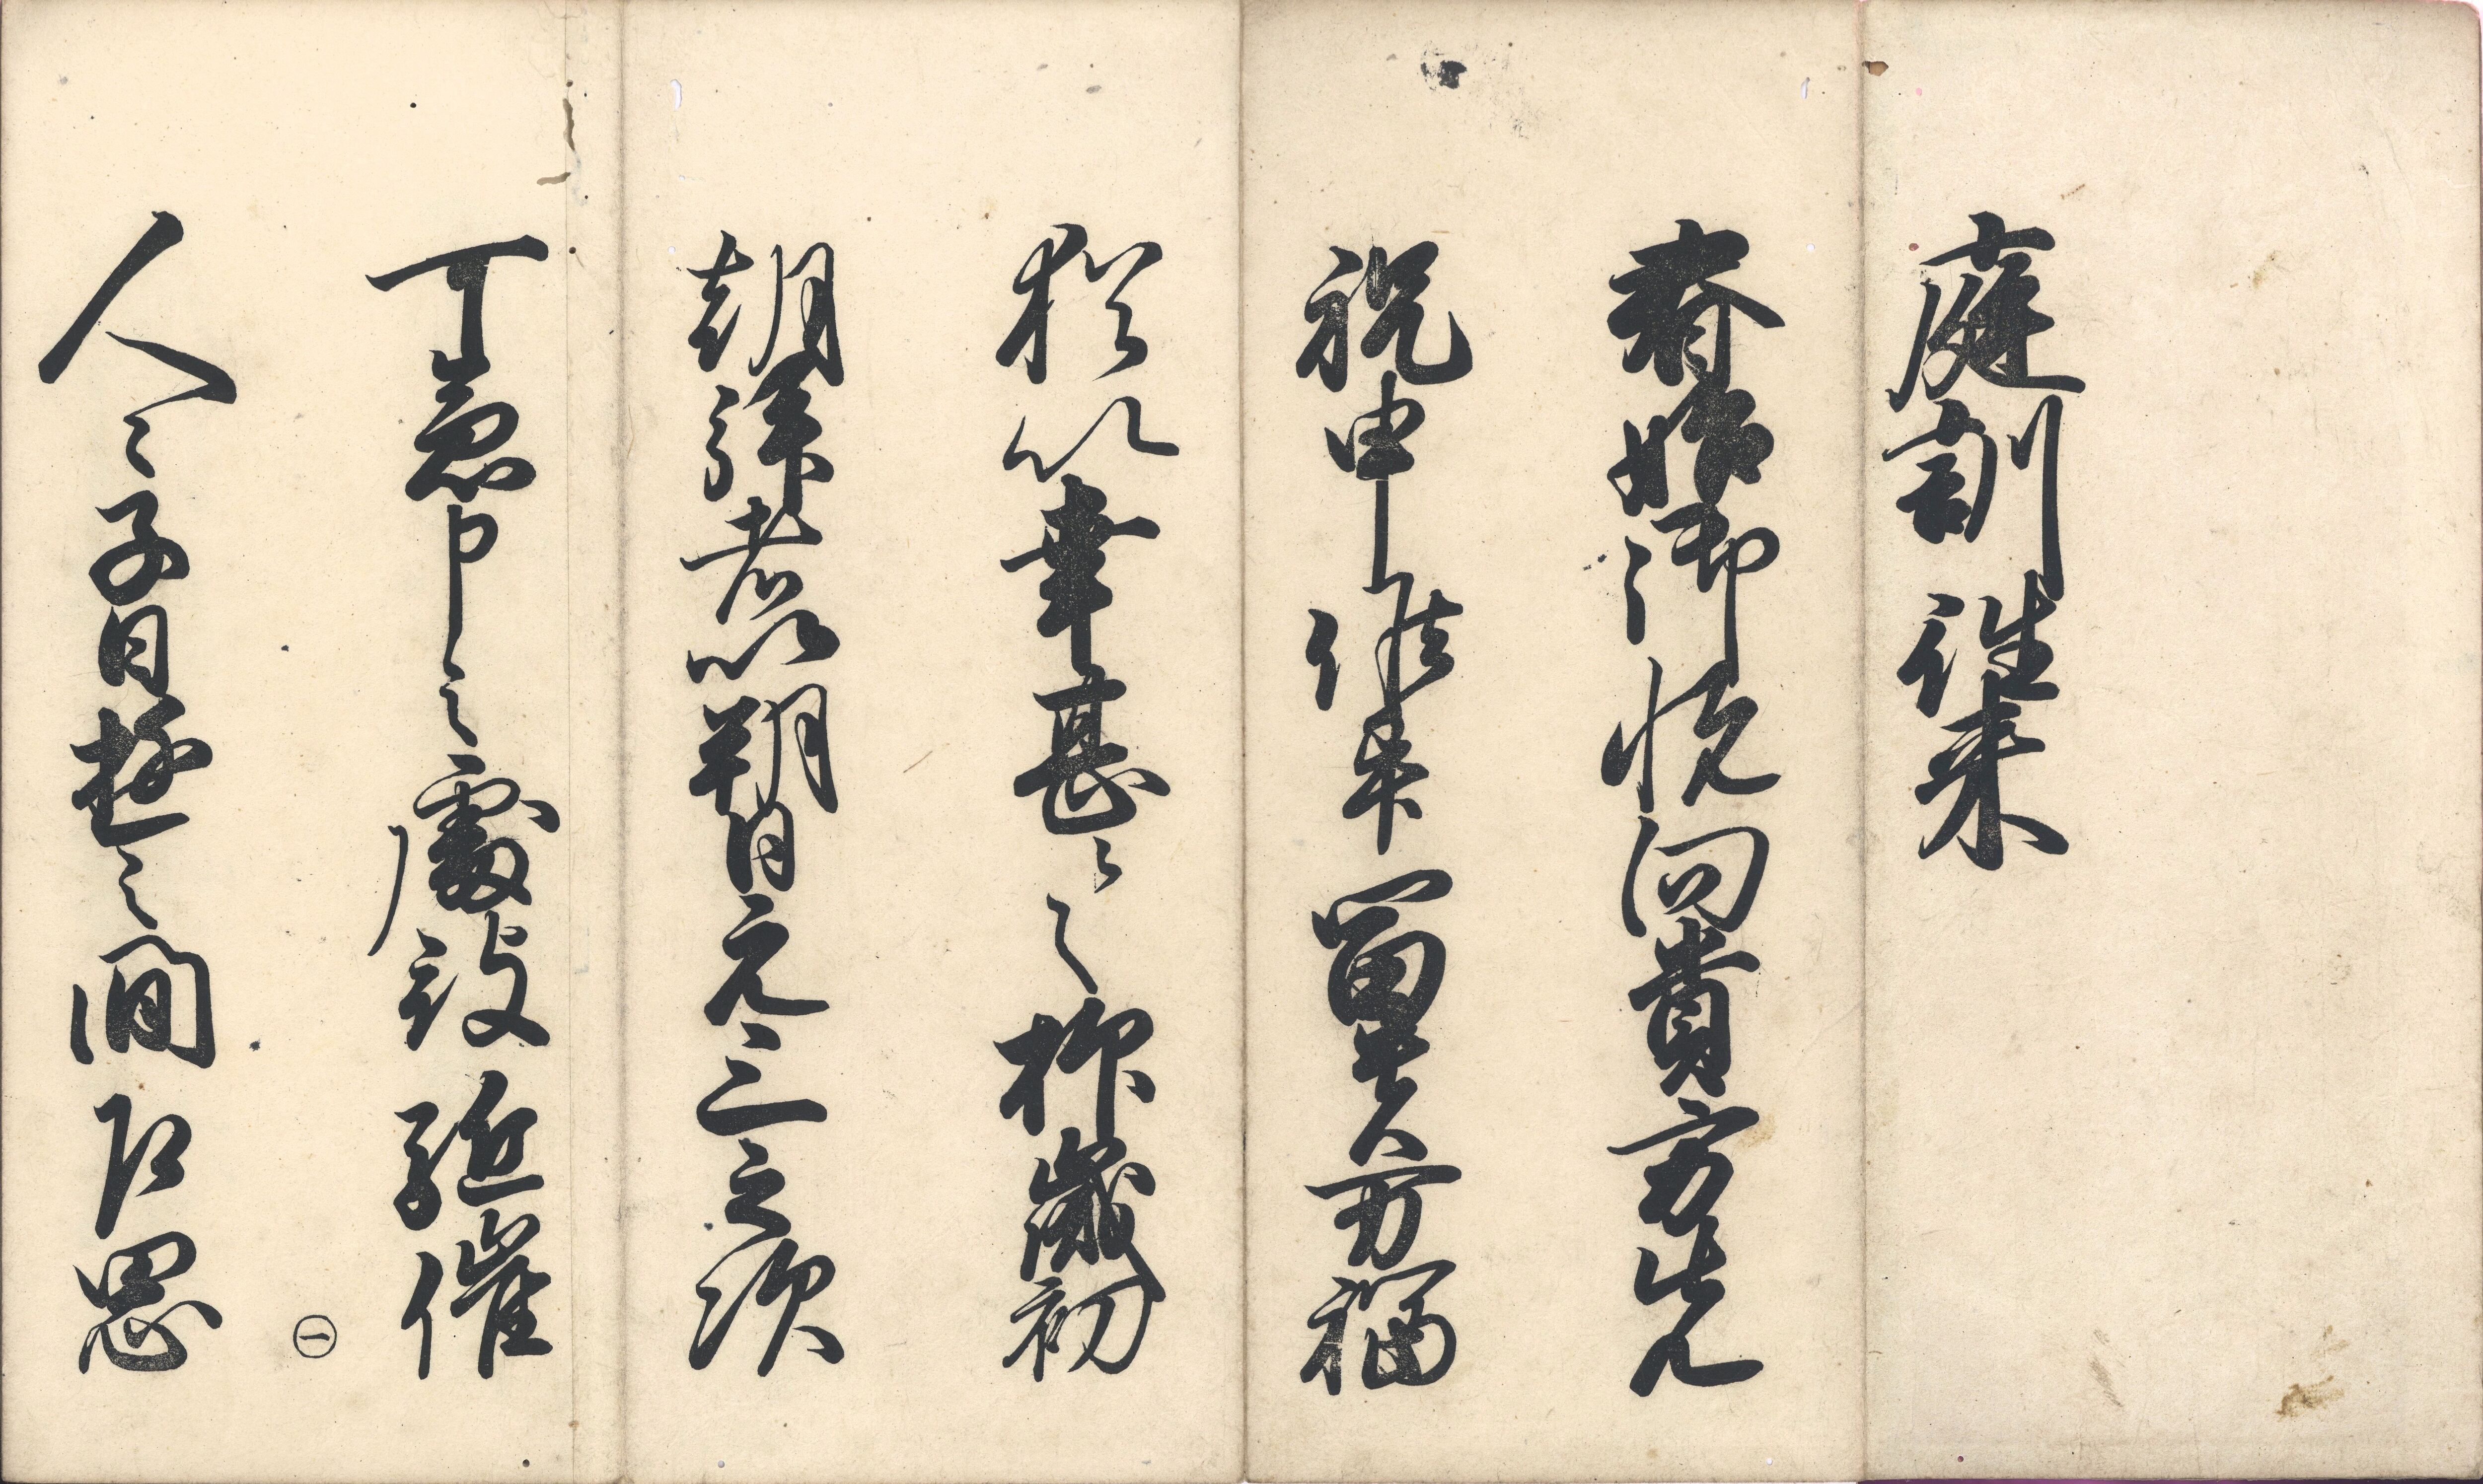 庭訓往来
春始御悦向貴方先
祝申候畢冨貴万福
猶以幸甚々々抑歳初
朝拝者以朔日元三之次
可急申之處被駈催
㊀
人々子日遊之間乍思